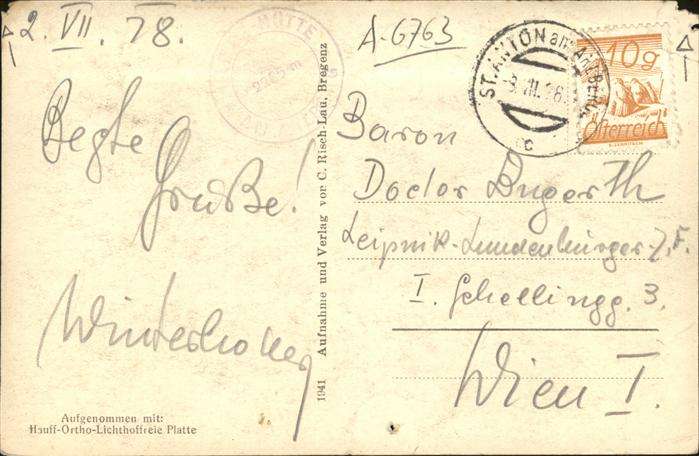 2. VII. 28.
Beste
Grüße!
Winterholler
Aufgenommen mit:
Hauff-Ortho-Lichthoffreie Platte
1941 Aufnahme und Verlag vor C. Risch-Lau, Bregenz
HÜTTE
A-6763
ST. ANTON am Arlberg
c
10g
Österreich
Baron
Doctor
Leipnik-Lundenburger-Z. F.
I. Schellingg. 3.
Wien I.